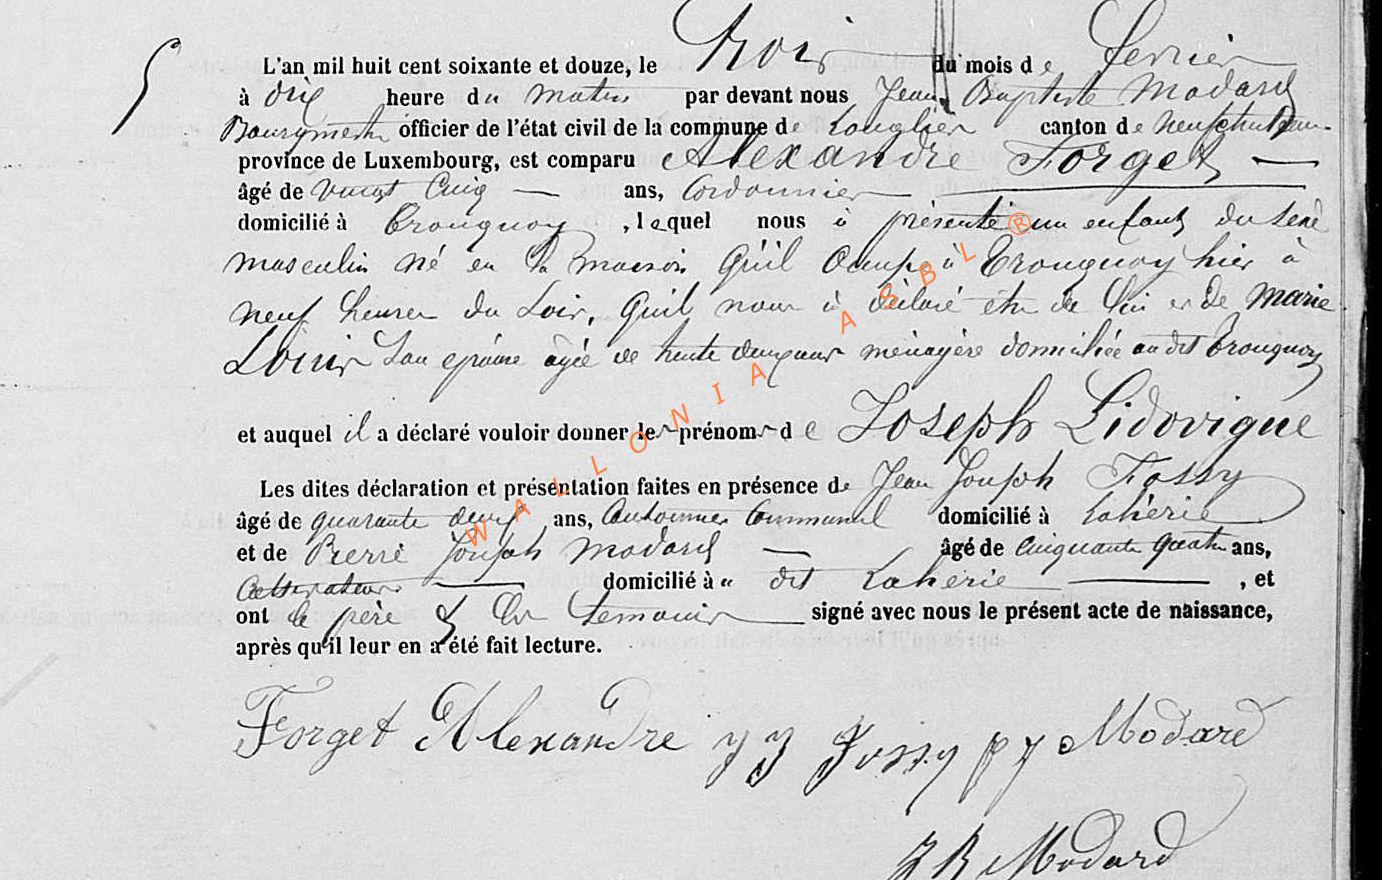 5
L'an mil huit cent soixante et douze, le trois du mois de fevrier
à dix heure du matin par devant nous Jean Baptiste Modard
Bourgmestre officier de l'état civil de la commune de Longlier canton de Neufchateau
province de Luxembourg, est comparu Alexandre Forget
âgé de vingt cinq ans, Cordonnier
domicilié à Tronquoy, lequel nous à présenté un enfant du sexe
masculin né en la maison qu'il occupe à Tronquoy hier à
neuf heures du soir, qu'il nous à déclaré être de lui et de Marie
Louis son épouse âgée de trente deux ans ménagère domiciliée au dit Tronquoy
et auquel il a déclaré vouloir donner les prénoms de Joseph Lidovigue
Les dites déclaration et présentation faites en présence de Jean Joseph Fossy
âgé de quarante deux ans, Cantonnier Communal domicilié à Lahérie
et de Pierre Joseph Modard âgé de cinquante quatre ans,
Cultivateur domicilié à " dit Lahérie, et
ont le père & les témoins signé avec nous le présent acte de naissance,
après qu'il leur en a été fait lecture.
Forget Alexandre J J Fossy p j Modard
J B Modard
WALLONIA ASBL ®